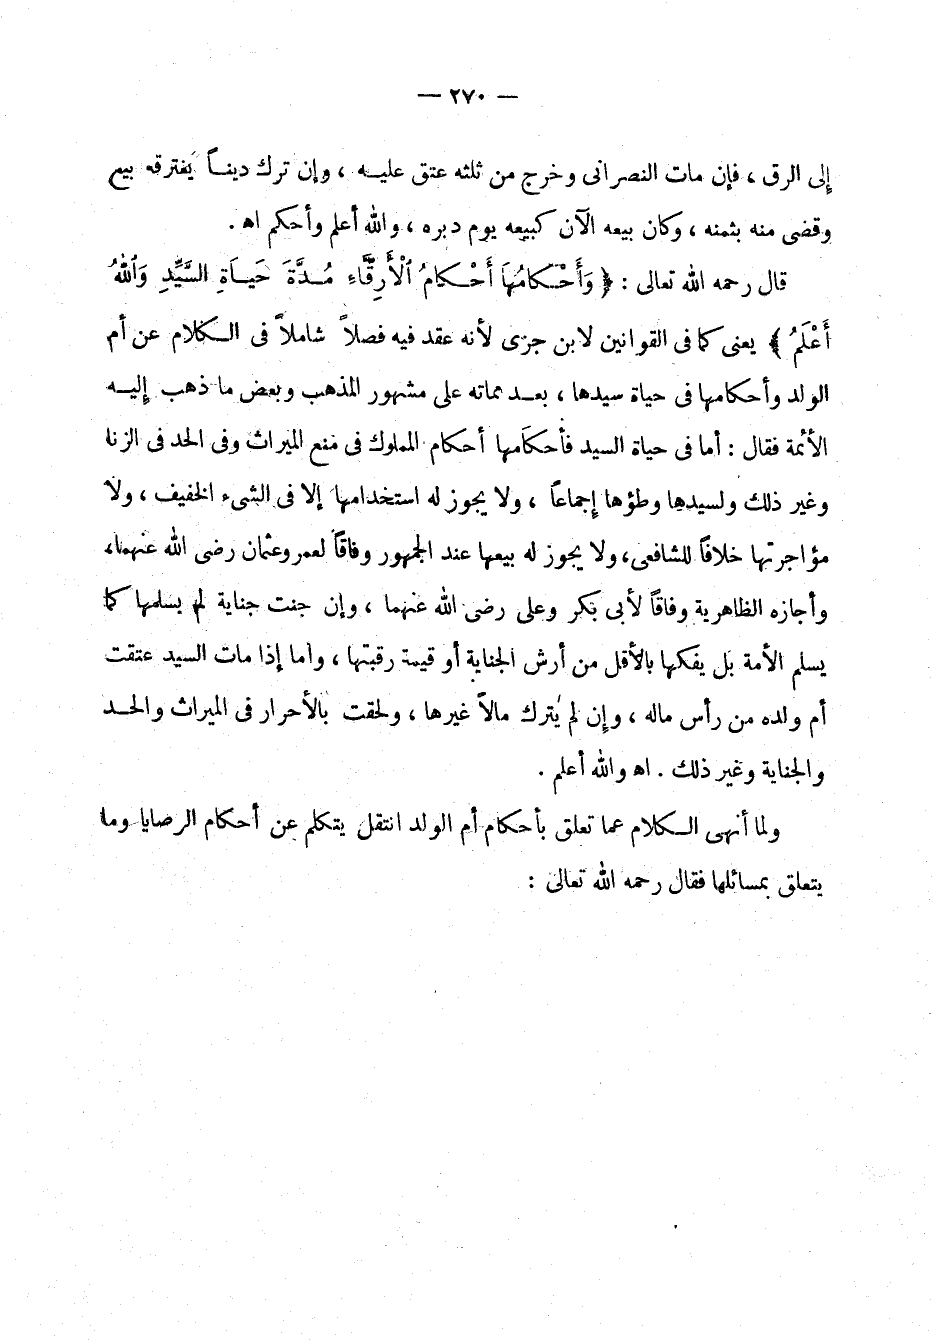 — ٢٧٠ —
إلى الرق ، فإن مات النصرانى وخرج من ثلثه عتق عليــه ، وإن ترك دينــاً يُغترقه بيع
وقضى منه بثمنه ، وكان بيعه الآن كبيعه يوم دبره ، والله أعلم وأحكم اه .
قال رحمه الله تعالى : ﴿ وَأَحْـكَامُهَا أَحْـكَامُ ٱلْأَرِقَّاءِ مُـدَّةَ حَيـاَةِ السَّيِّدِ وَٱللهُ
أَعْلَمُ ﴾ يعنى كما فى القوانين لابن جزى لأنه عقد فيه فصلاً شاملاً فى الـكلام عن أم
الولد وأحكامها فى حياة سيدها ، بعـد مماته على مشهور المذهب وبعض ما ذهب إليــه
الأئمة فقال : أما فى حياة السيد فأحكامها أحكام المملوك فى منع الميراث وفى الحد فى الزنا
وغير ذلك ولسيدها وطؤها إجماعاً ، ولا يجوز له استخدامها إلا فى الشىء الخفيف ، ولا
مؤاجرتها خلافاً للشافعى، ولا يجوز له بيعها عند الجمهور وفاقاً لعمر وعثمان رضى الله عنهما،
وأجازه الظاهرية وفاقاً لأبى بكر وعلى رضى الله عنهما ، وإن جنت جناية لم يسلمها كما
يسلم الأمة بل يفكها بالأقل من أرش الجناية أو قيمة رقبتها ، وأما إذا مات السيد عتقت
أم ولده من رأس ماله ، وإن لم يُترك مالاً غيرها ، ولحقت بالأحرار فى الميراث والحـد
والجناية وغير ذلك . اه والله أعلم .
ولما أنهى الـكلام عما تعلق بأحكام أم الولد انتقل يتكلم عن أحكام الرصايا وما
يتعلق بمسائلها فقال رحمه الله تعالى :